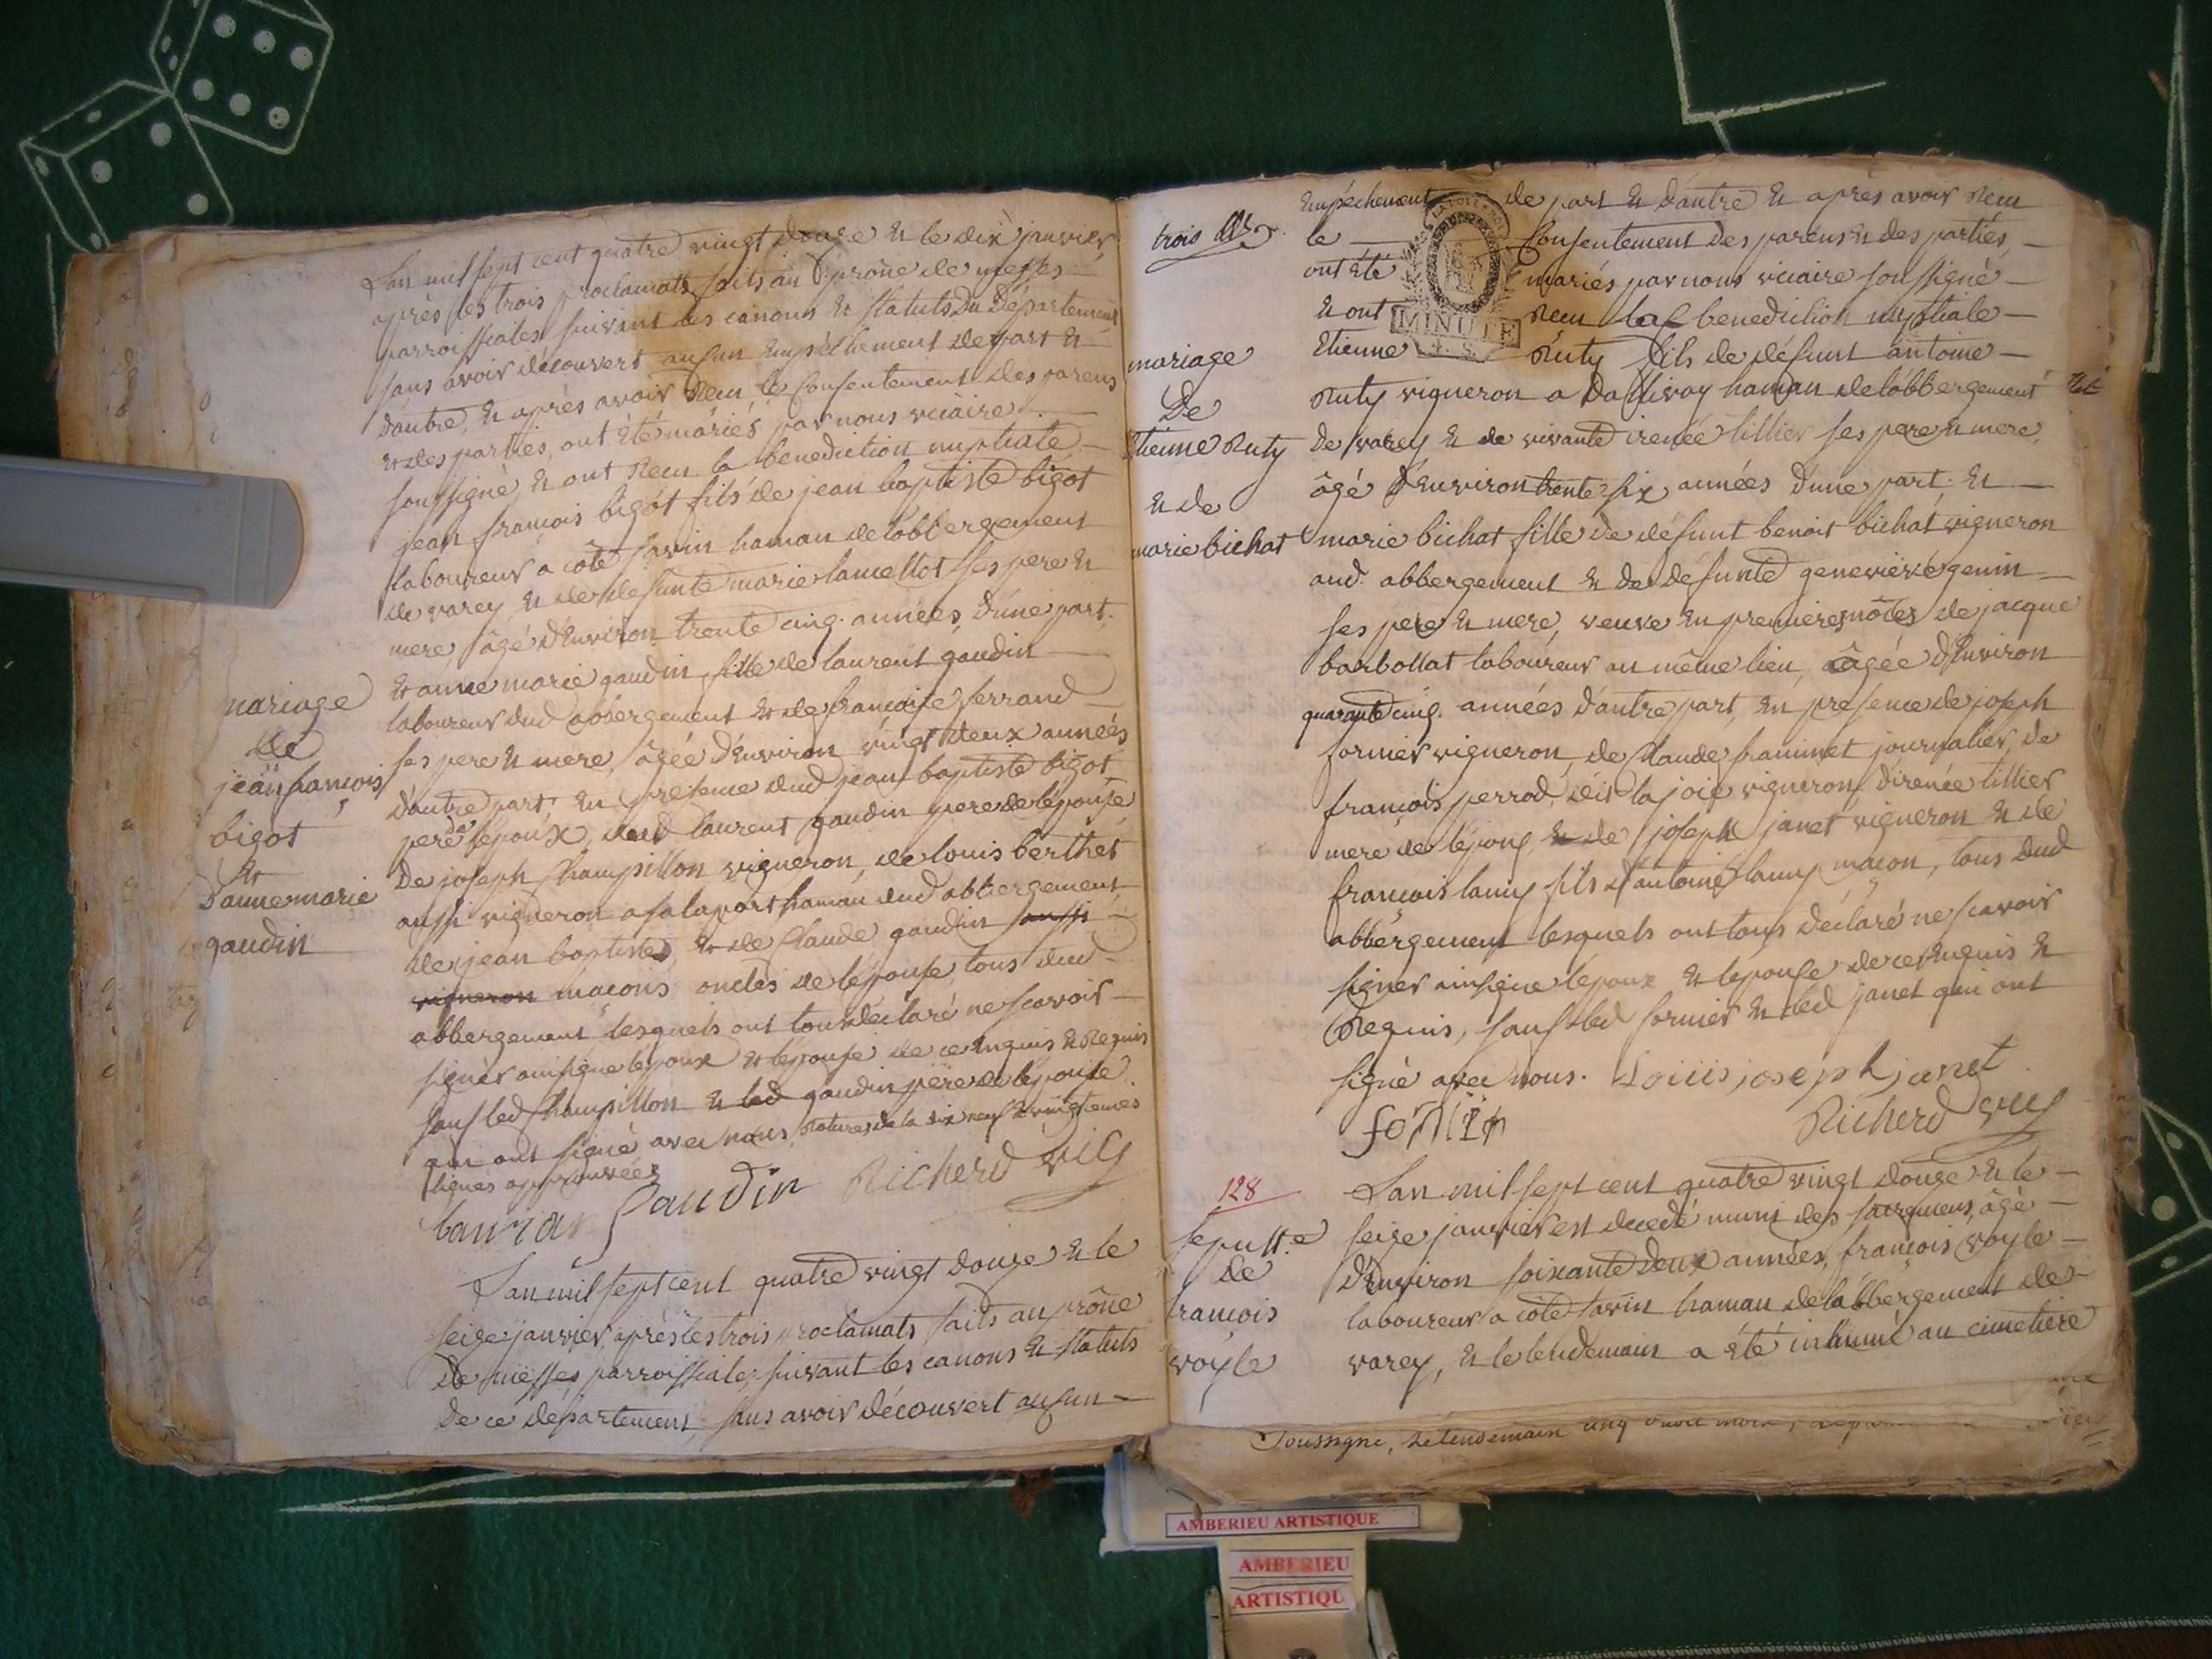 Lan mil sept cent quatre vingt douze et le dix janvier
après les trois proclamats faits au prône de messes
parroissiales suivant les canons et statuts du Département
sans avoir découvert aucun empêchement de part et
d'autre, et après avoir recu le consentement des parens
et des parties, ont été mariés par nous vicaire
soussigné et ont recu la benediction nuptiale
jean françois bigot fils de jean baptiste bigot
laboureur a côte savin hamau de labbergement
de varey et de defunte marie lamellot ses pere et
mere, âgé d'environ trente cinq années d'une part.
et anne marie gaudin fille de laurent gaudin
laboureur dud abbergement et de françoise ferrand
ses pere et mere, âgée d'environ vingt deux années
d'autre part, en presence dud jean baptiste bigot
pere de lépoux, dud laurent gaudin pere de lépouse
de joseph Champillon vigneron, de louis berthet
aussi vigneron hamau dud abbergement
de jean baptiste et de Claude gaudin aussi
vigneron maçons oncles de lépouse, tous dud
abbergement lesquels ont tous déclaré ne scavoir
signer ainsi que lépoux et lépouse de ce enquis et requis
sauf led Champillon et led gaudin pere de lépouse
qui ont signé avec nous, ratures de la dix neuf et vingtemes
lignes approuvées
Gaudin Richerd vic
Lan mil sept cent quatre vingt douze et le
seize janvier, après les trois proclamats faits au prône
de messes parroissiales, suivant les canons et statuts
de ce département, sans avoir découvert aucun
mariage
de
jean françois
bigot
et
D'anne marie
gaudin
trois
empêchement de part et d'autre et après avoir recu
le consentement des parens et des parties,
ont été mariés par nous vicaire soussigné
et ont recu la benediction nuptiale
Etienne Ruty fils de défunt antoine
Ruty vigneron a hamau de labbergement
de varey et de vivante irenée tillier ses pere et mere,
âgé d'environ trente six années d'une part. et
marie bichat fille de défunt benoit bichat vigneron
aud. abbergement et de défunte geneviève genin
ses pere et mere, veuve en premieres nôces de jacque
barbollat laboureur au même lieu, âgée d'environ
quarante cinq. années d'autre part, en presence de joseph
fornier vigneron, de Claude framinet journalier, de
françois perrod, dit la joie vigneron, d'irenée tillier
mere de lépoux et de joseph janet vigneron et de
françois lamy fils d'antoine lamy maçon, tous dud
abbergement lesquels ont tous déclaré ne scavoir
signer ainsi que lépoux et lépouse de ce enquis et
requis, sauf led fornier et led janet qui ont
signé avec nous. Loüis joseph janet
fornier Richerd vic
mariage
De
Etienne Ruty
et de
marie bichat
Lan mil sept cent quatre vingt douze et le
seize janvier est decedé muni des sacremens, âgé
d'environ soixante deux années, françois voyle
laboureur a côte savin hamau de labbergement de
varey, et le lendemain a été inhumé au cimetiere
128
sepult.e
de
françois
voyle
MINUTE
soussigné, le lendemain cinq
AMBERIEU ARTISTIQUE
AMBERIEU
ARTISTIQU